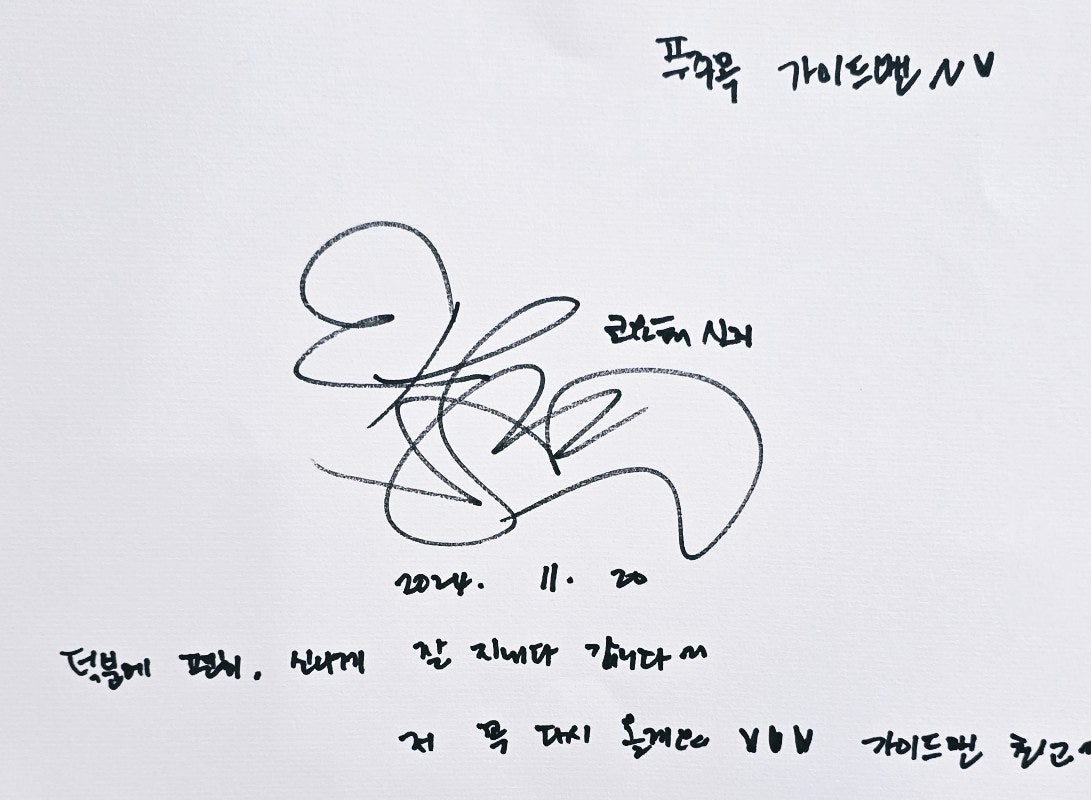 푸꾸옥 가이드맨~♥
코요태 신지
2024. 11. 20
덕분에 편히, 신나게 잘 지내다 갑니다~
저 꼭 다시 올게요 ♥♥♥ 가이드맨 최고~